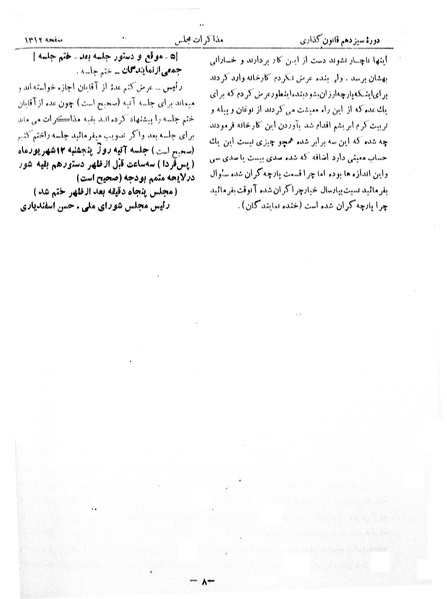 دورهٔ سیزدهم قانون گذاری
مذاکرات مجلس
صفحه ۱۳۱۲
اینها ناچار نشوند دست از این کار بردارند و خساراتی
بهشان برسد . ولی بنده عرض نکردم کارخانه وارد کردند
برای اینکه پارچه ارزان بشود بنده اینطور عرض کردم که برای
یك عده که از این راه معیشت می کردند از نوغان و پیله و
تربیت کرم ابریشم اقدام شد بآوردن این کارخانه فرمودند
چه شده که این سه برابر شده همچو چیزی نیست این یك
حساب معینی دارد اضافه که شده صدی بیست یا صدی سی
و این اندازه ها بوده اما چرا قسمت پارچه گران شده سئوال
بفرمائید نسبت بپارسال خیار چرا گران شده آنوقت بفرمائید
چرا پارچه گران شده است (خنده نمایندگان) .
[۵ ـ موقع و دستور جلسه بعد ـ ختم جلسه]
جمعی از نمایندگان ـ ختم جلسه .
رئیس ـ عرض کنم عدهٔ از آقایان اجازه خواسته‌اند و
میماند برای جلسه آتیه (صحیح است) چون عده از آقایان
ختم جلسه را پیشنهاد کرده اند بقیه مذاکرات می ماند
برای جلسه بعد و اگر تصویب میفرمائید جلسه را ختم کنیم
(صحیح است) جلسه آتیه روز پنجشنبه ۱۲ شهریور ماه
(پس فردا) سه ساعت قبل از ظهر دستور هم بقیه شور
در لایحه متمم بودجه (صحیح است)
(مجلس پنجاه دقیقه بعد از ظهر ختم شد)
رئیس مجلس شورای ملی ـ حسن اسفندیاری
ـ ۸ ـ